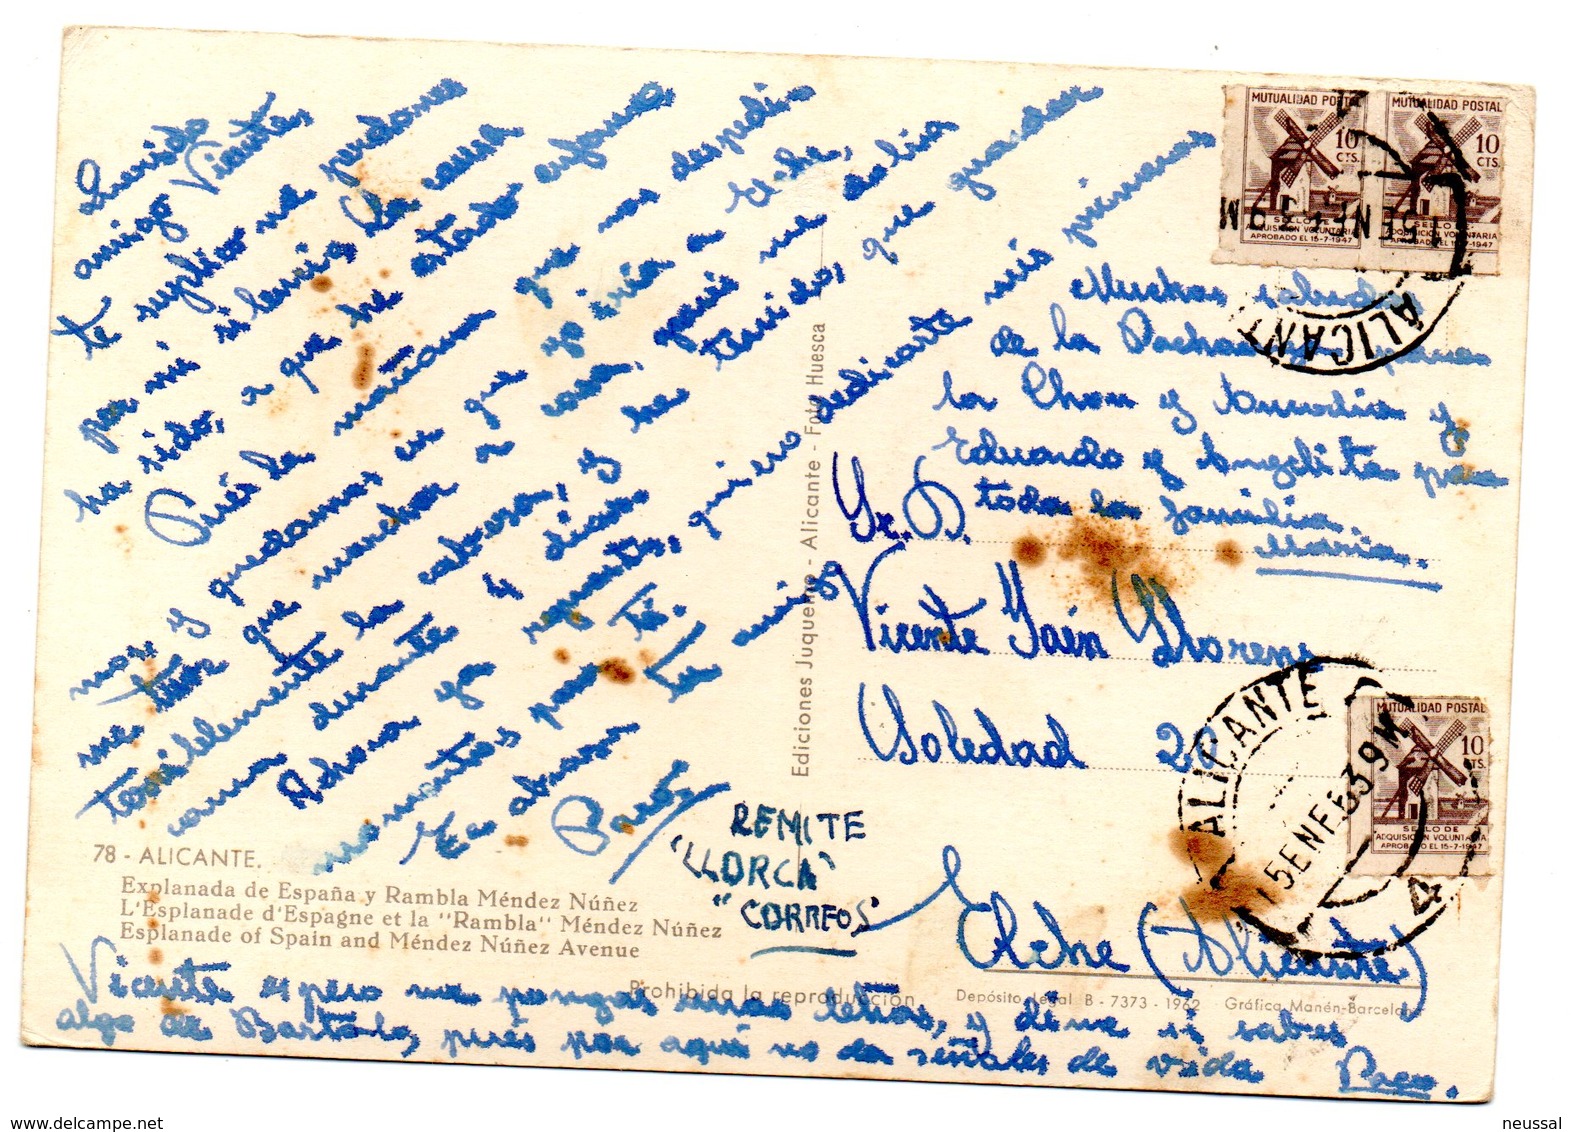 Querido
amigo Vicente,
te suplico me perdones
por mi silencio. La causa
ha sido, a que he estado enfermo,
Pués la mañana que nos despedi-
mos, y quedamos en que yo iría a Elche,
me tuve que marchar a casa, pués me dolía
terriblemente la cabeza, y he tenido, que guardar
cama durante 4 dias.
Ahora ya repuesto, quiero dedicarte mis primeros
momentos para tí.
Un abrazo Tu amigo
Paco
MUTUALIDAD POSTAL
10 CTS.
SELLO DE
ADQUISICION VOLUNTARIA
APROBADO EL 15-7-1947
MUTUALIDAD POSTAL
10 CTS.
SELLO DE
ADQUISICION VOLUNTARIA
APROBADO EL 15-7-1947
ALICANTE
Muchos saludos
de la para
la y y
Eduardo y Angelita para
toda la familia.
María.
Sr. D.
Vicente Jaén Llorens
Soledad 20
Elche (Alicante)
MUTUALIDAD POSTAL
10 CTS.
SELLO DE
ADQUISICION VOLUNTARIA
APROBADO EL 15-7-1947
ALICANTE
15 ENE 63 9M
4
Ediciones Juquemo - Alicante - Foto Huesca
REMITE
"LLORCA"
"CORREOS"
78 - ALICANTE.
Explanada de España y Rambla Méndez Núñez
L'Esplanade d'Espagne et la "Rambla" Méndez Núñez
Esplanade of Spain and Méndez Núñez Avenue
Prohibida la reproducción
Depósito legal B - 7373 - 1962 Gráfica Manén-Barcelona
Vicente espero me pongas unas letras, y dime si sabes
algo de Bartolo, pués por aquí no da señales de vida Paco.
neussal